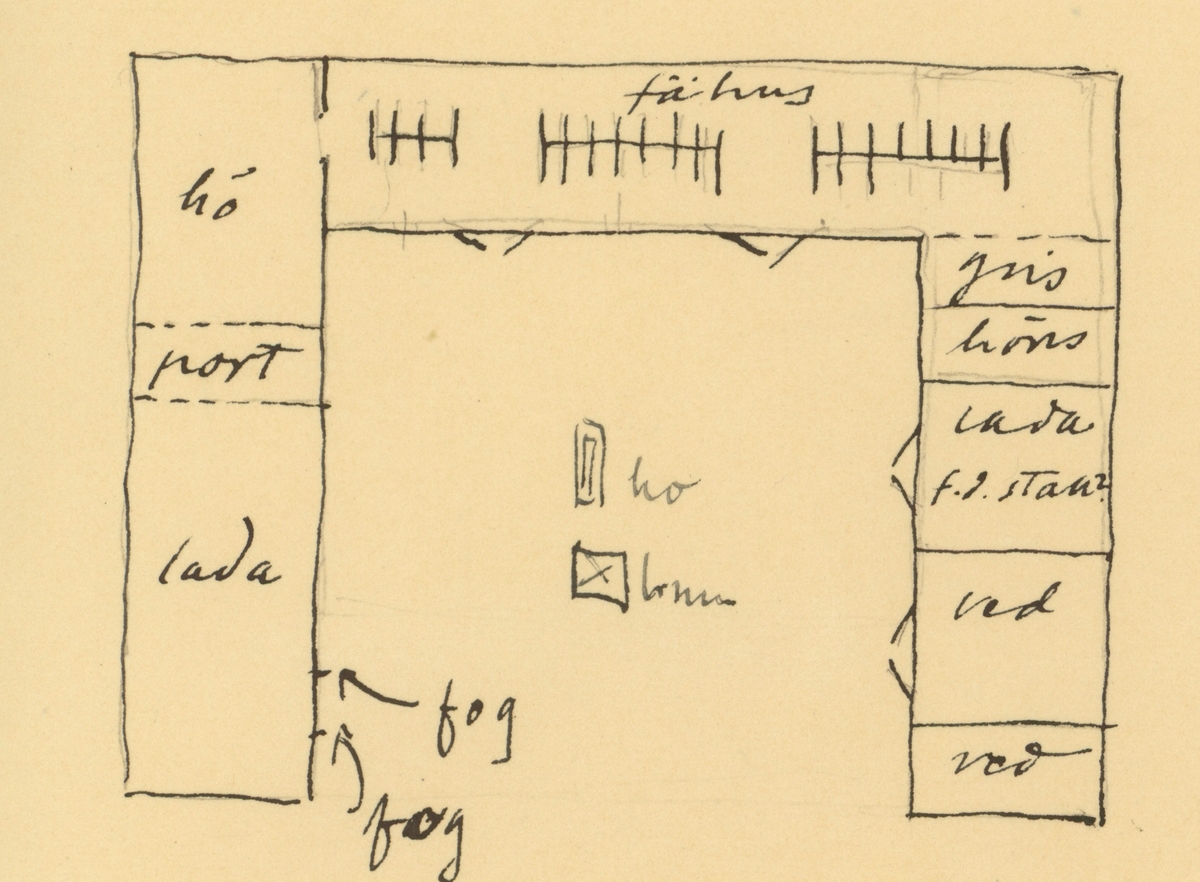 fähus
hö
gris
port
höns
lada
f.d. stall?
ho
lada
ved
fog
ved
fog